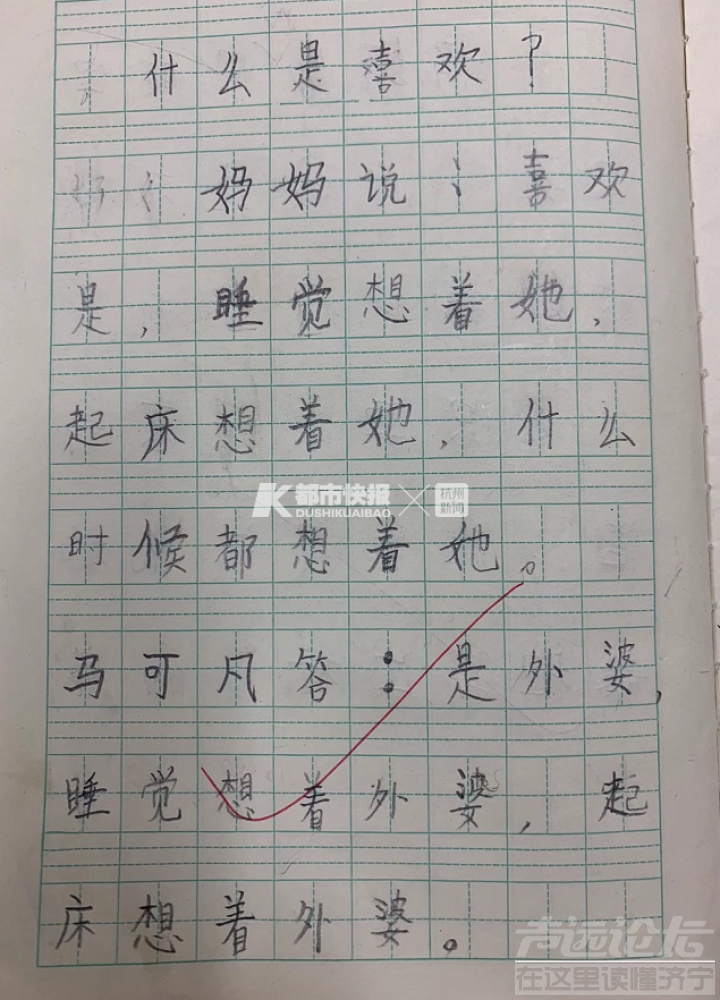 什么是喜欢？
妈妈说：喜欢
是，睡觉想着她，
起床想着她，什么
时候都想着她。
K都市快报×杭州新闻
DUSHIKUAIBAO
马可凡答：是外婆，
睡觉想着外婆，起
床想着外婆。
声远论坛
在这里读懂济宁